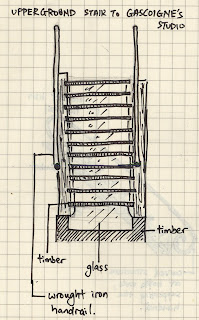 UPPERGROUND STAIR TO GASCOIGNE'S
STUDIO
timber
glass
timber
wrought iron
handrail.